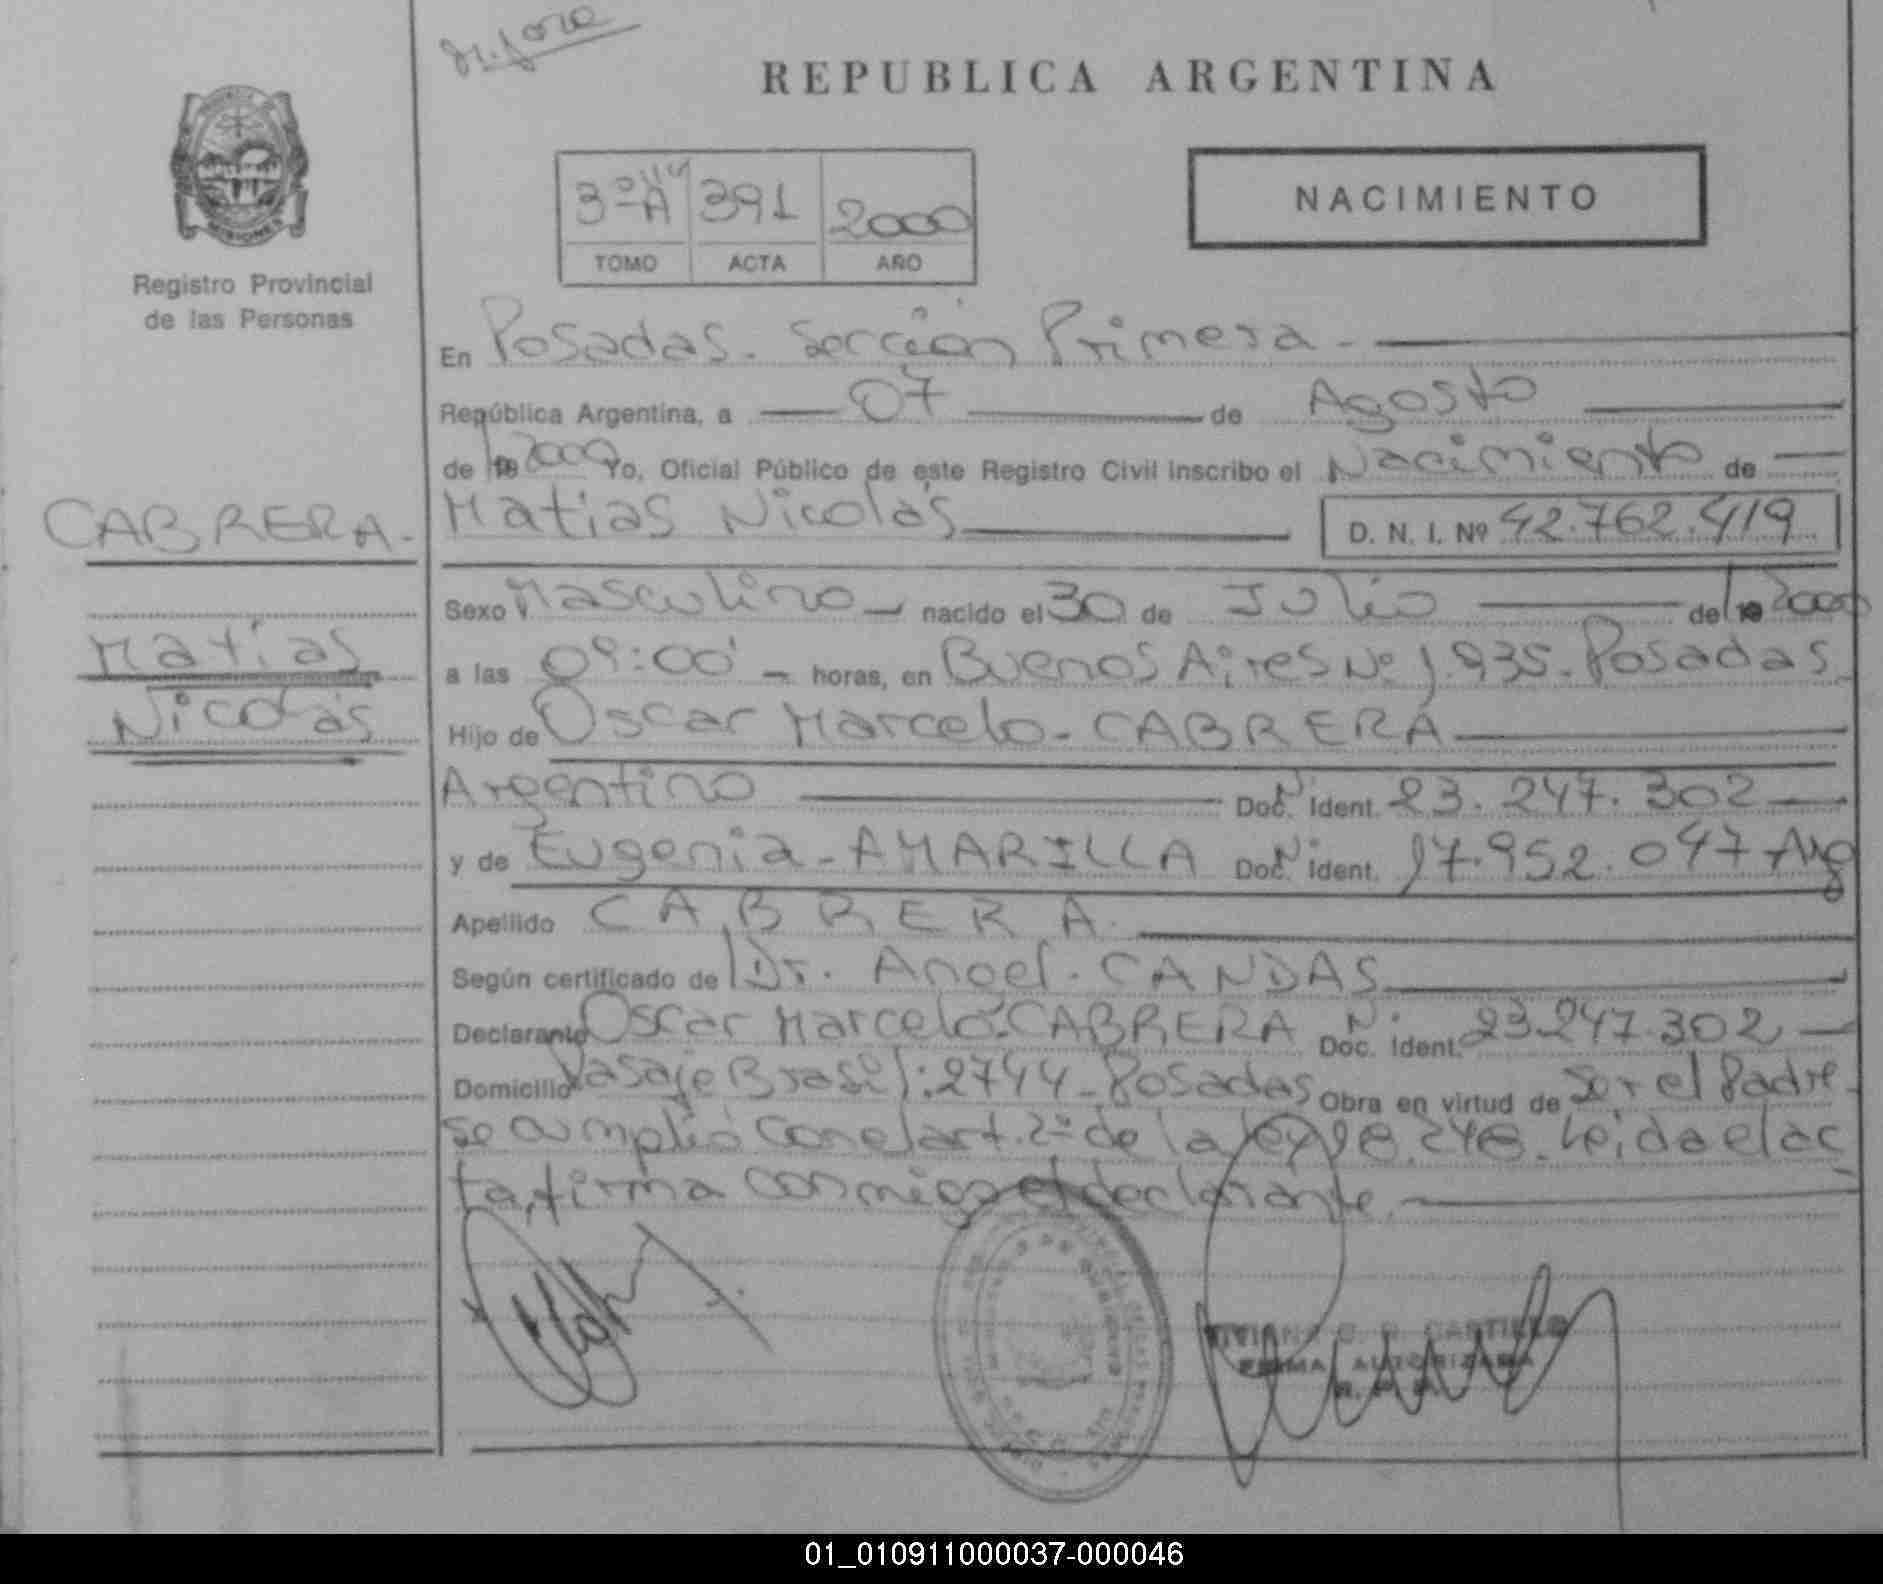 REPUBLICA ARGENTINA
MISIONES
Registro Provincial
de las Personas
3º A 391 2000
TOMO ACTA AÑO
NACIMIENTO
En Posadas. Sección Primera.
República Argentina, a 07 de Agosto
de 19 2000 Yo, Oficial Público de este Registro Civil inscribo el Nacimiento de
CABRERA.
Matías Nicolás D. N. I. Nº 42.762.419
Matías
Nicolás
Sexo Masculino nacido el 30 de Julio de 19 2000
a las 09:00' horas, en Buenos Aires Nº 1.935. Posadas
Hijo de Oscar Marcelo - CABRERA
Argentino Doc. Ident. 23.247.302
y de Eugenia - AMARILLA Doc. Ident. 17.952.047 Arg
Apellido CABRERA.
Según certificado de Dr. Angel. CANDAS
Declarante Oscar Marcelo. CABRERA Doc. Ident. 23.247.302
Domicilio Pasaje Brasil: 2744 - Posadas Obra en virtud de ser el Padre.
se cumplió con el art. 2º de la ley 18.248. Leída el ac
ta, firma conmigo el declarante.
CASTILLO
FIRMA AUTORIZADA
01_010911000037-000046